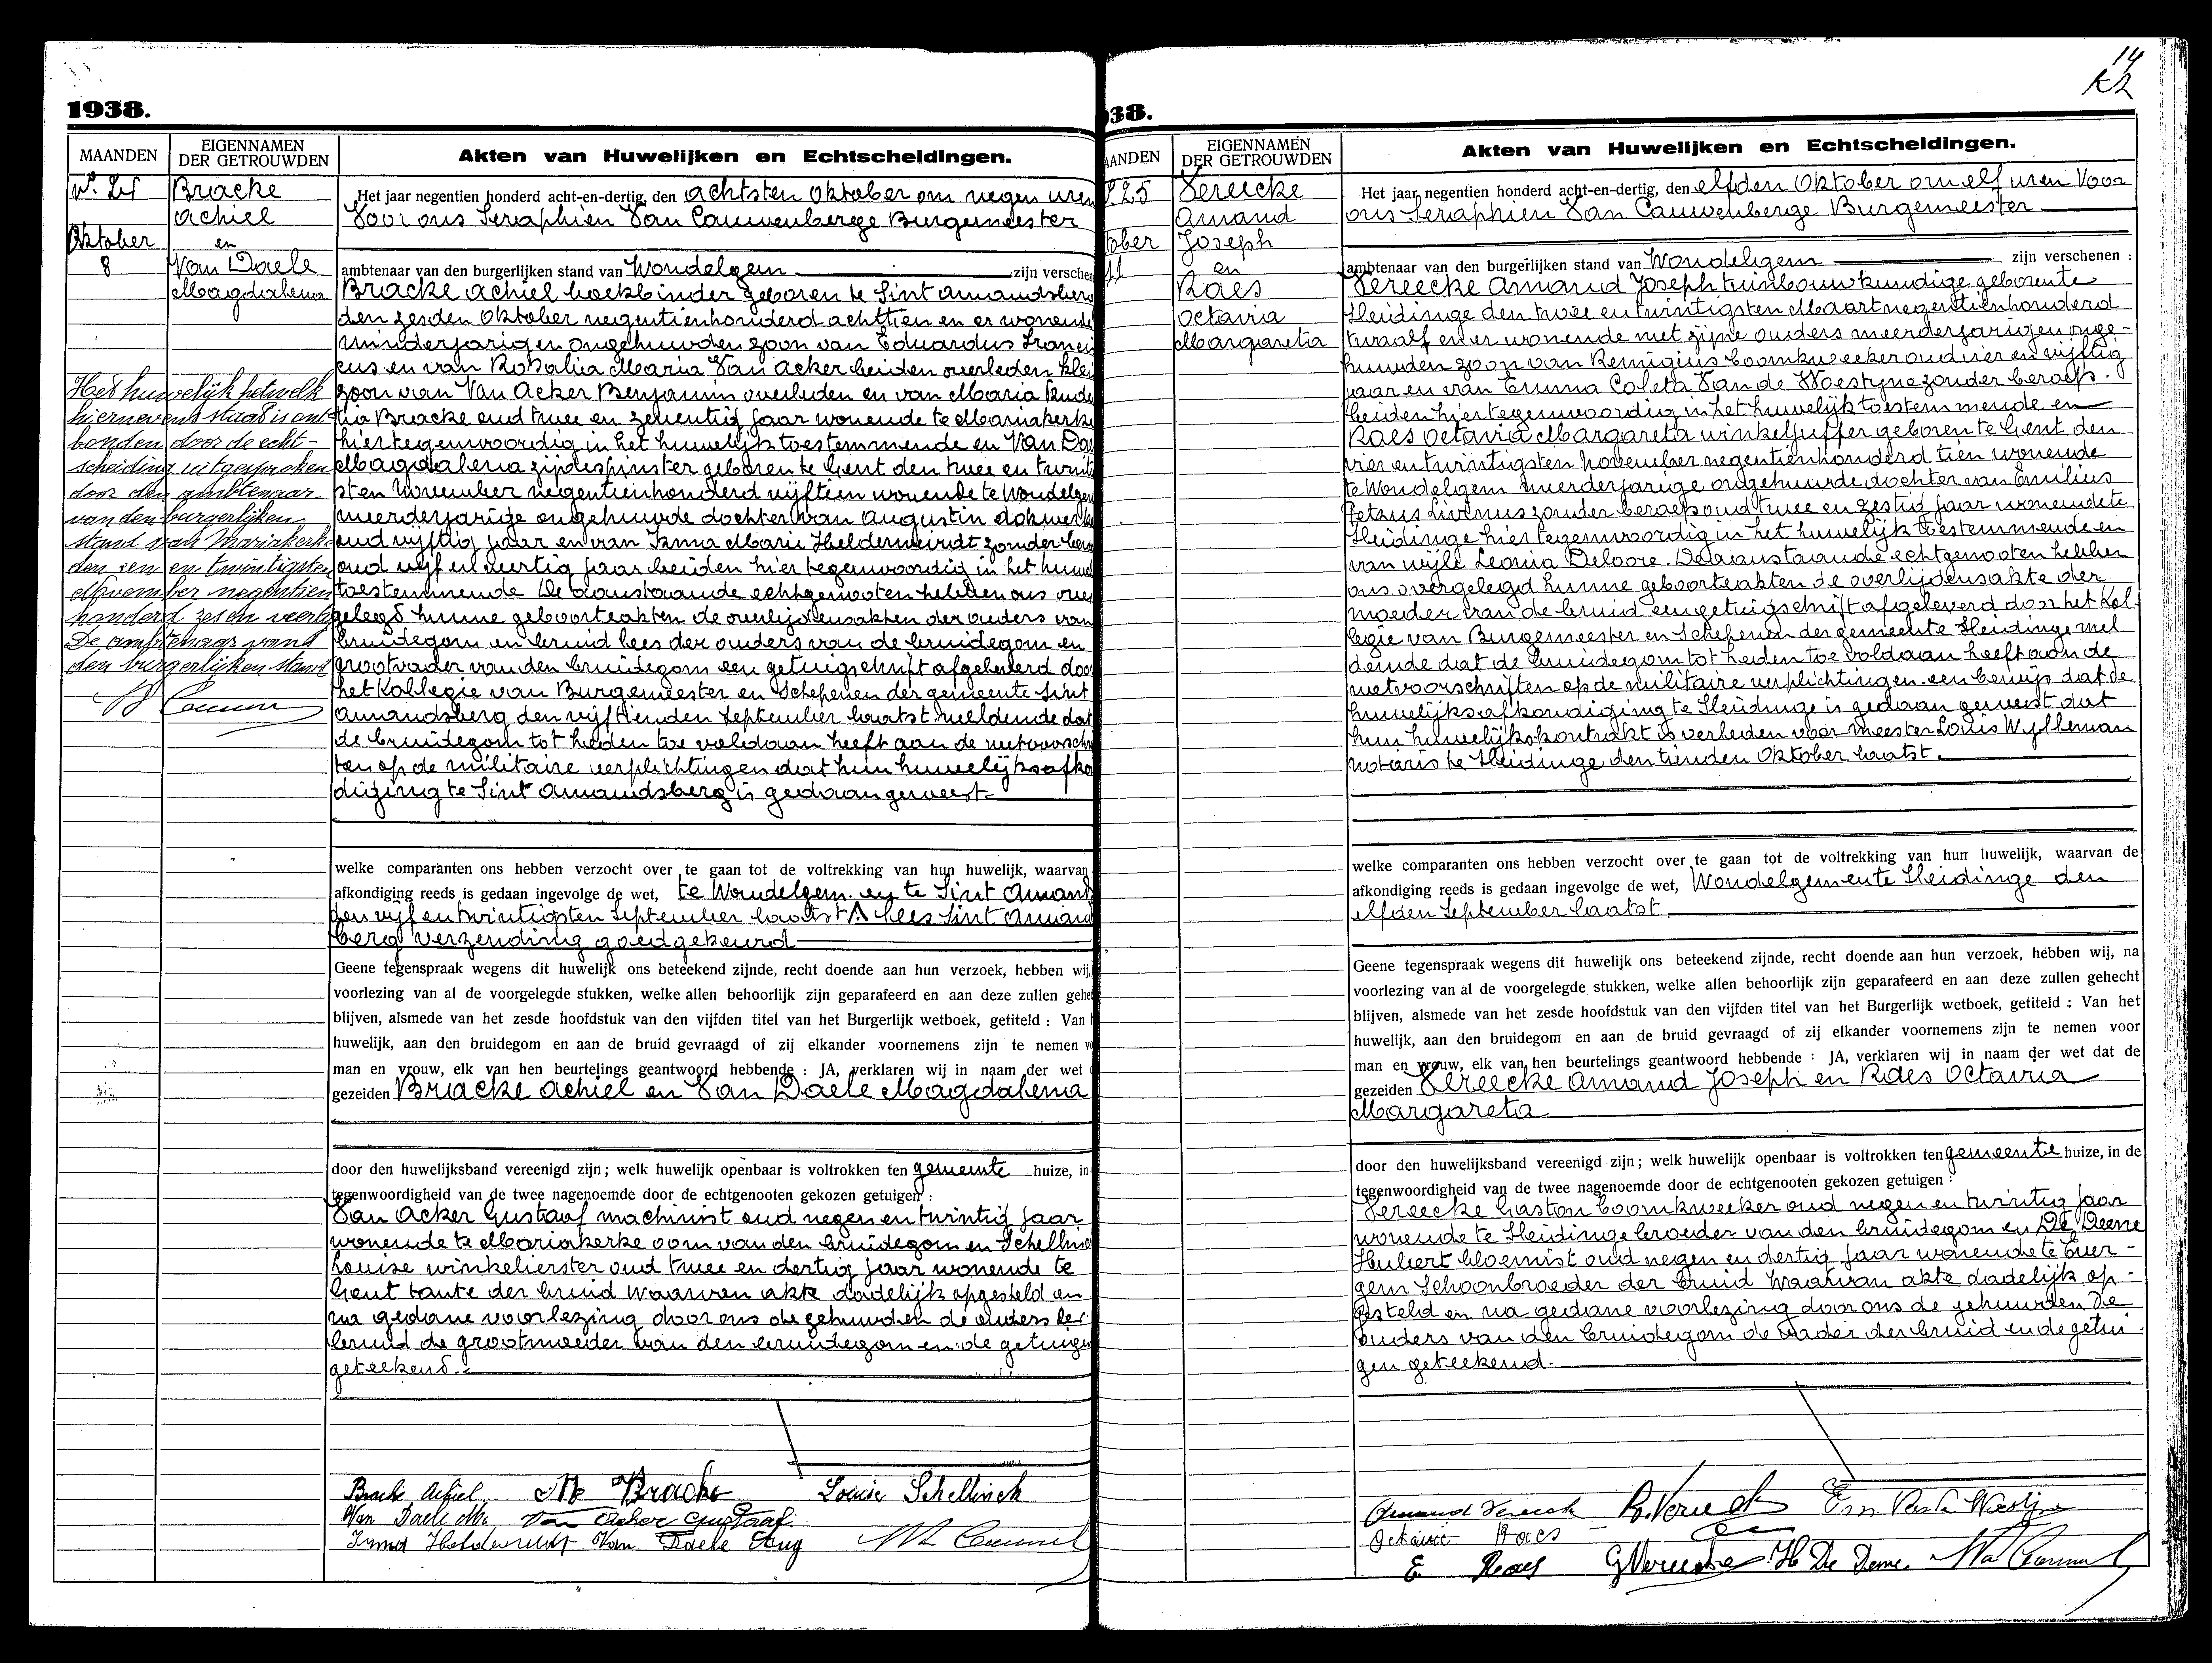 1938.
MAANDEN
EIGENNAMEN
DER GETROUWDEN
Akten van Huwelijken en Echtscheidingen.
Nº. 24
Oktober
8
Bracke
Achiel
en
Van Daele
Magdalena
Het huwelijk hetwelk
hiernevens staat is ont-
bonden door de echt-
scheiding uitgesproken
door den ambtenaar
van den burgerlijken
stand van Mariakerke
den een en twintigsten
November negentien
honderd zes en veertig
De ambtenaar van
den burgerlijken stand
Het jaar negentien honderd acht-en-dertig, den achtsten Oktober om negen uren
Voor ons Seraphien Van Cauwenberge Burgemeester
ambtenaar van den burgerlijken stand van Wondelgem zijn versche
Bracke Achiel boekbinder geboren te Sint Amandsberg
den zesden Oktober negentienhonderd achttien en er wonende
minderjarigen ongehuwden zoon van Eduardus Francis
cus en van Rosalia Maria Van Acker beiden overleden klein
zoon van Van Acker Benjamin overleden en van Maria Pruden
tia Bracke oud twee en zeventig jaar wonende te Mariakerke
hier tegenwoordig in het huwelijk toestemmende en Van Dae
Magdalena zijdespinster geboren te Gent den twee en twinti
sten November negentienhonderd vijftien wonende te Wondelgem
meerderjarige ongehuwde dochter van Augustin dokwerker
oud vijftig jaar en van Irma Marie Helderweirdt zonder beroe
oud vijf en veertig jaar beiden hier tegenwoordig in het huwel
toestemmende De aanstaande echtgenooten hebben ons over
gelegd hunne geboorteakten de overlijdensakten der ouders van
bruidegom en bruid lees der ouders van de bruidegom en
grootvader van den bruidegom een getuigschrift afgeleverd door
het Kollegie van Burgemeester en Schepenen der gemeente Sint
Amandsberg den vijftienden September laatst meldende dat
de bruidegom tot heden toe voldaan heeft aan de wetvoorschri
ten op de militaire verplichtingen dat hun huwelijksafko
diging te Sint Amandsberg is gedaan geweest
welke comparanten ons hebben verzocht over te gaan tot de voltrekking van hun huwelijk, waarvan
afkondiging reeds is gedaan ingevolge de wet, te Wondelgem en te Sint Amand
den vijf en twintigsten September laatst lees Sint Amand
berg verzending goedgekeurd
Geene tegenspraak wegens dit huwelijk ons beteekend zijnde, recht doende aan hun verzoek, hebben wij,
voorlezing van al de voorgelegde stukken, welke allen behoorlijk zijn geparafeerd en aan deze zullen gehe
blijven, alsmede van het zesde hoofdstuk van den vijfden titel van het Burgerlijk wetboek, getiteld : Van
huwelijk, aan den bruidegom en aan de bruid gevraagd of zij elkander voornemens zijn te nemen vo
man en vrouw, elk van hen beurtelings geantwoord hebbende : JA, verklaren wij in naam der wet
gezeiden Bracke Achiel en Van Daele Magdalena
door den huwelijksband vereenigd zijn; welk huwelijk openbaar is voltrokken ten gemeente huize, in
tegenwoordigheid van de twee nagenoemde door de echtgenooten gekozen getuigen :
Van Acker Gustaaf machinist oud negen en twintig jaar
wonende te Mariakerke oom van den bruidegom en Schellinc
Louise winkelierster oud twee en dertig jaar wonende te
Gent tante der bruid waarvan akte dadelijk opgesteld en
na gedane voorlezing door ons de gehuwden de ouders der
bruid de grootmoeder van den bruidegom en de getuigen
geteekend.
Bracke Achiel M Bracke Louise Schellinck
Van Daele M. Van Acker Gustaaf
Irma Helderweirdt Van Daele Aug
14
38.
AANDEN
EIGENNAMEN
DER GETROUWDEN
Akten van Huwelijken en Echtscheidingen.
º.25
tober
11
Vereecke
Amand
Joseph
en
Raes
Octavia
Margareta
Het jaar negentien honderd acht-en-dertig, den elfden Oktober om elf uren Voor
ons Seraphien Van Cauwenberge Burgemeester
ambtenaar van den burgerlijken stand van Wondelgem zijn verschenen :
Vereecke Amand Joseph tuinbouwkundige geboren te
Sleidinge den twee en twintigsten Maart negentienhonderd
twaalf en er wonende met zijne ouders meerderjarigen onge-
huwden zoon van Remigius boomkweeker oud vier en vijftig
jaar en van Emma Coleta Van de Woestyne zonder beroep.
beiden hier tegenwoordig in het huwelijk toestemmende en
Raes Octavia Margareta winkeljuffer geboren te Gent den
vier en twintigsten November negentienhonderd tien wonende
te Wondelgem meerderjarige ongehuwde dochter van Emilius
Petrus Livinus zonder beroep oud twee en zestig jaar wonende te
Sleidinge hier tegenwoordig in het huwelijk toestemmende en
van wijle Leonia Deloore. De aanstaande echtgenooten hebben
ons overgelegd hunne geboorteakten de overlijdensakte der
moeder van de bruid een getuigschrift afgeleverd door het Kol-
legie van Burgemeester en Schepenen der gemeente Sleidinge mel
dende dat de bruidegom tot heden toe voldaan heeft aan de
wetvoorschriften op de militaire verplichtingen een bewijs dat de
huwelijksafkondiging te Sleidinge is gedaan geweest dat
hun huwelijkskontrakt is verleden voor meester Louis Wylleman
notaris te Sleidinge den tienden Oktober laatst.
welke comparanten ons hebben verzocht over te gaan tot de voltrekking van hun huwelijk, waarvan de
afkondiging reeds is gedaan ingevolge de wet, Wondelgem en te Sleidinge den
elfden September laatst.
Geene tegenspraak wegens dit huwelijk ons beteekend zijnde, recht doende aan hun verzoek, hebben wij, na
voorlezing van al de voorgelegde stukken, welke allen behoorlijk zijn geparafeerd en aan deze zullen gehecht
blijven, alsmede van het zesde hoofdstuk van den vijfden titel van het Burgerlijk wetboek, getiteld : Van het
huwelijk, aan den bruidegom en aan de bruid gevraagd of zij elkander voornemens zijn te nemen voor
man en vrouw, elk van hen beurtelings geantwoord hebbende : JA, verklaren wij in naam der wet dat de
gezeiden Vereecke Amand Joseph en Raes Octavia
Margareta
door den huwelijksband vereenigd zijn; welk huwelijk openbaar is voltrokken ten gemeente huize, in de
tegenwoordigheid van de twee nagenoemde door de echtgenooten gekozen getuigen :
Vereecke Gaston boomkweeker oud negen en twintig jaar
wonende te Sleidinge broeder van den bruidegom en De Deene
Hubert bloemist oud negen en dertig jaar wonende te Ever-
gem Schoonbroeder der bruid Waarvan akte dadelijk op-
gesteld en na gedane voorlezing door ons de gehuwden de
ouders van den bruidegom de vader der bruid en de getui
gen geteekend.
Octavie Raes
E Raes G Vereecke H De Deene